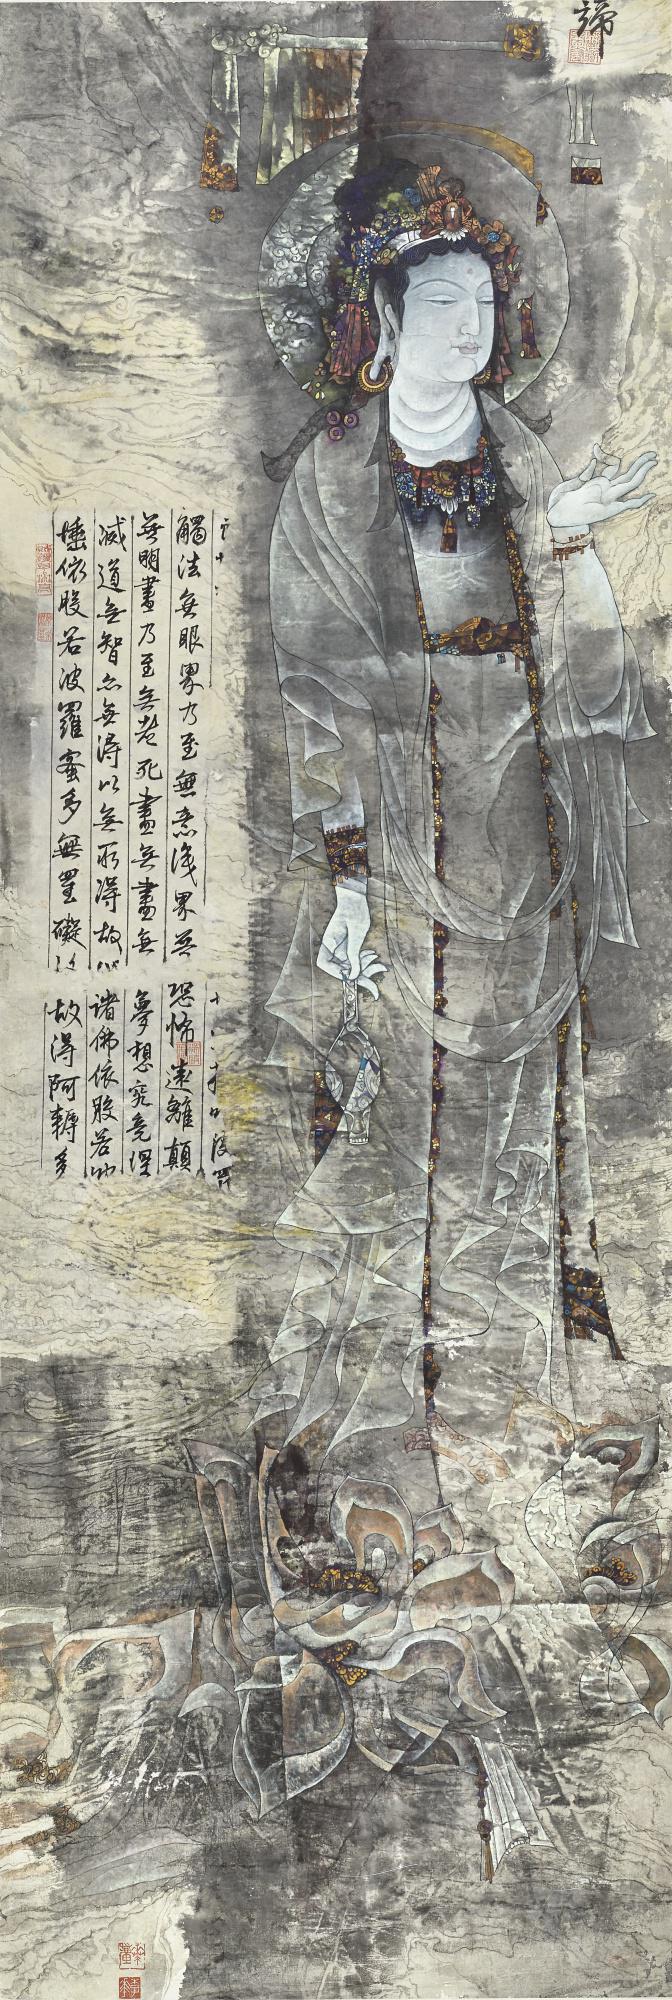 諦
觸法無眼界乃至無意識界無
無明盡乃至無老死盡無盡無
滅道無智亦無得以無所得故
埵依般若波羅蜜多無罣礙
恐怖遠離顛
夢想究竟涅
諸佛依般若
故得阿耨多